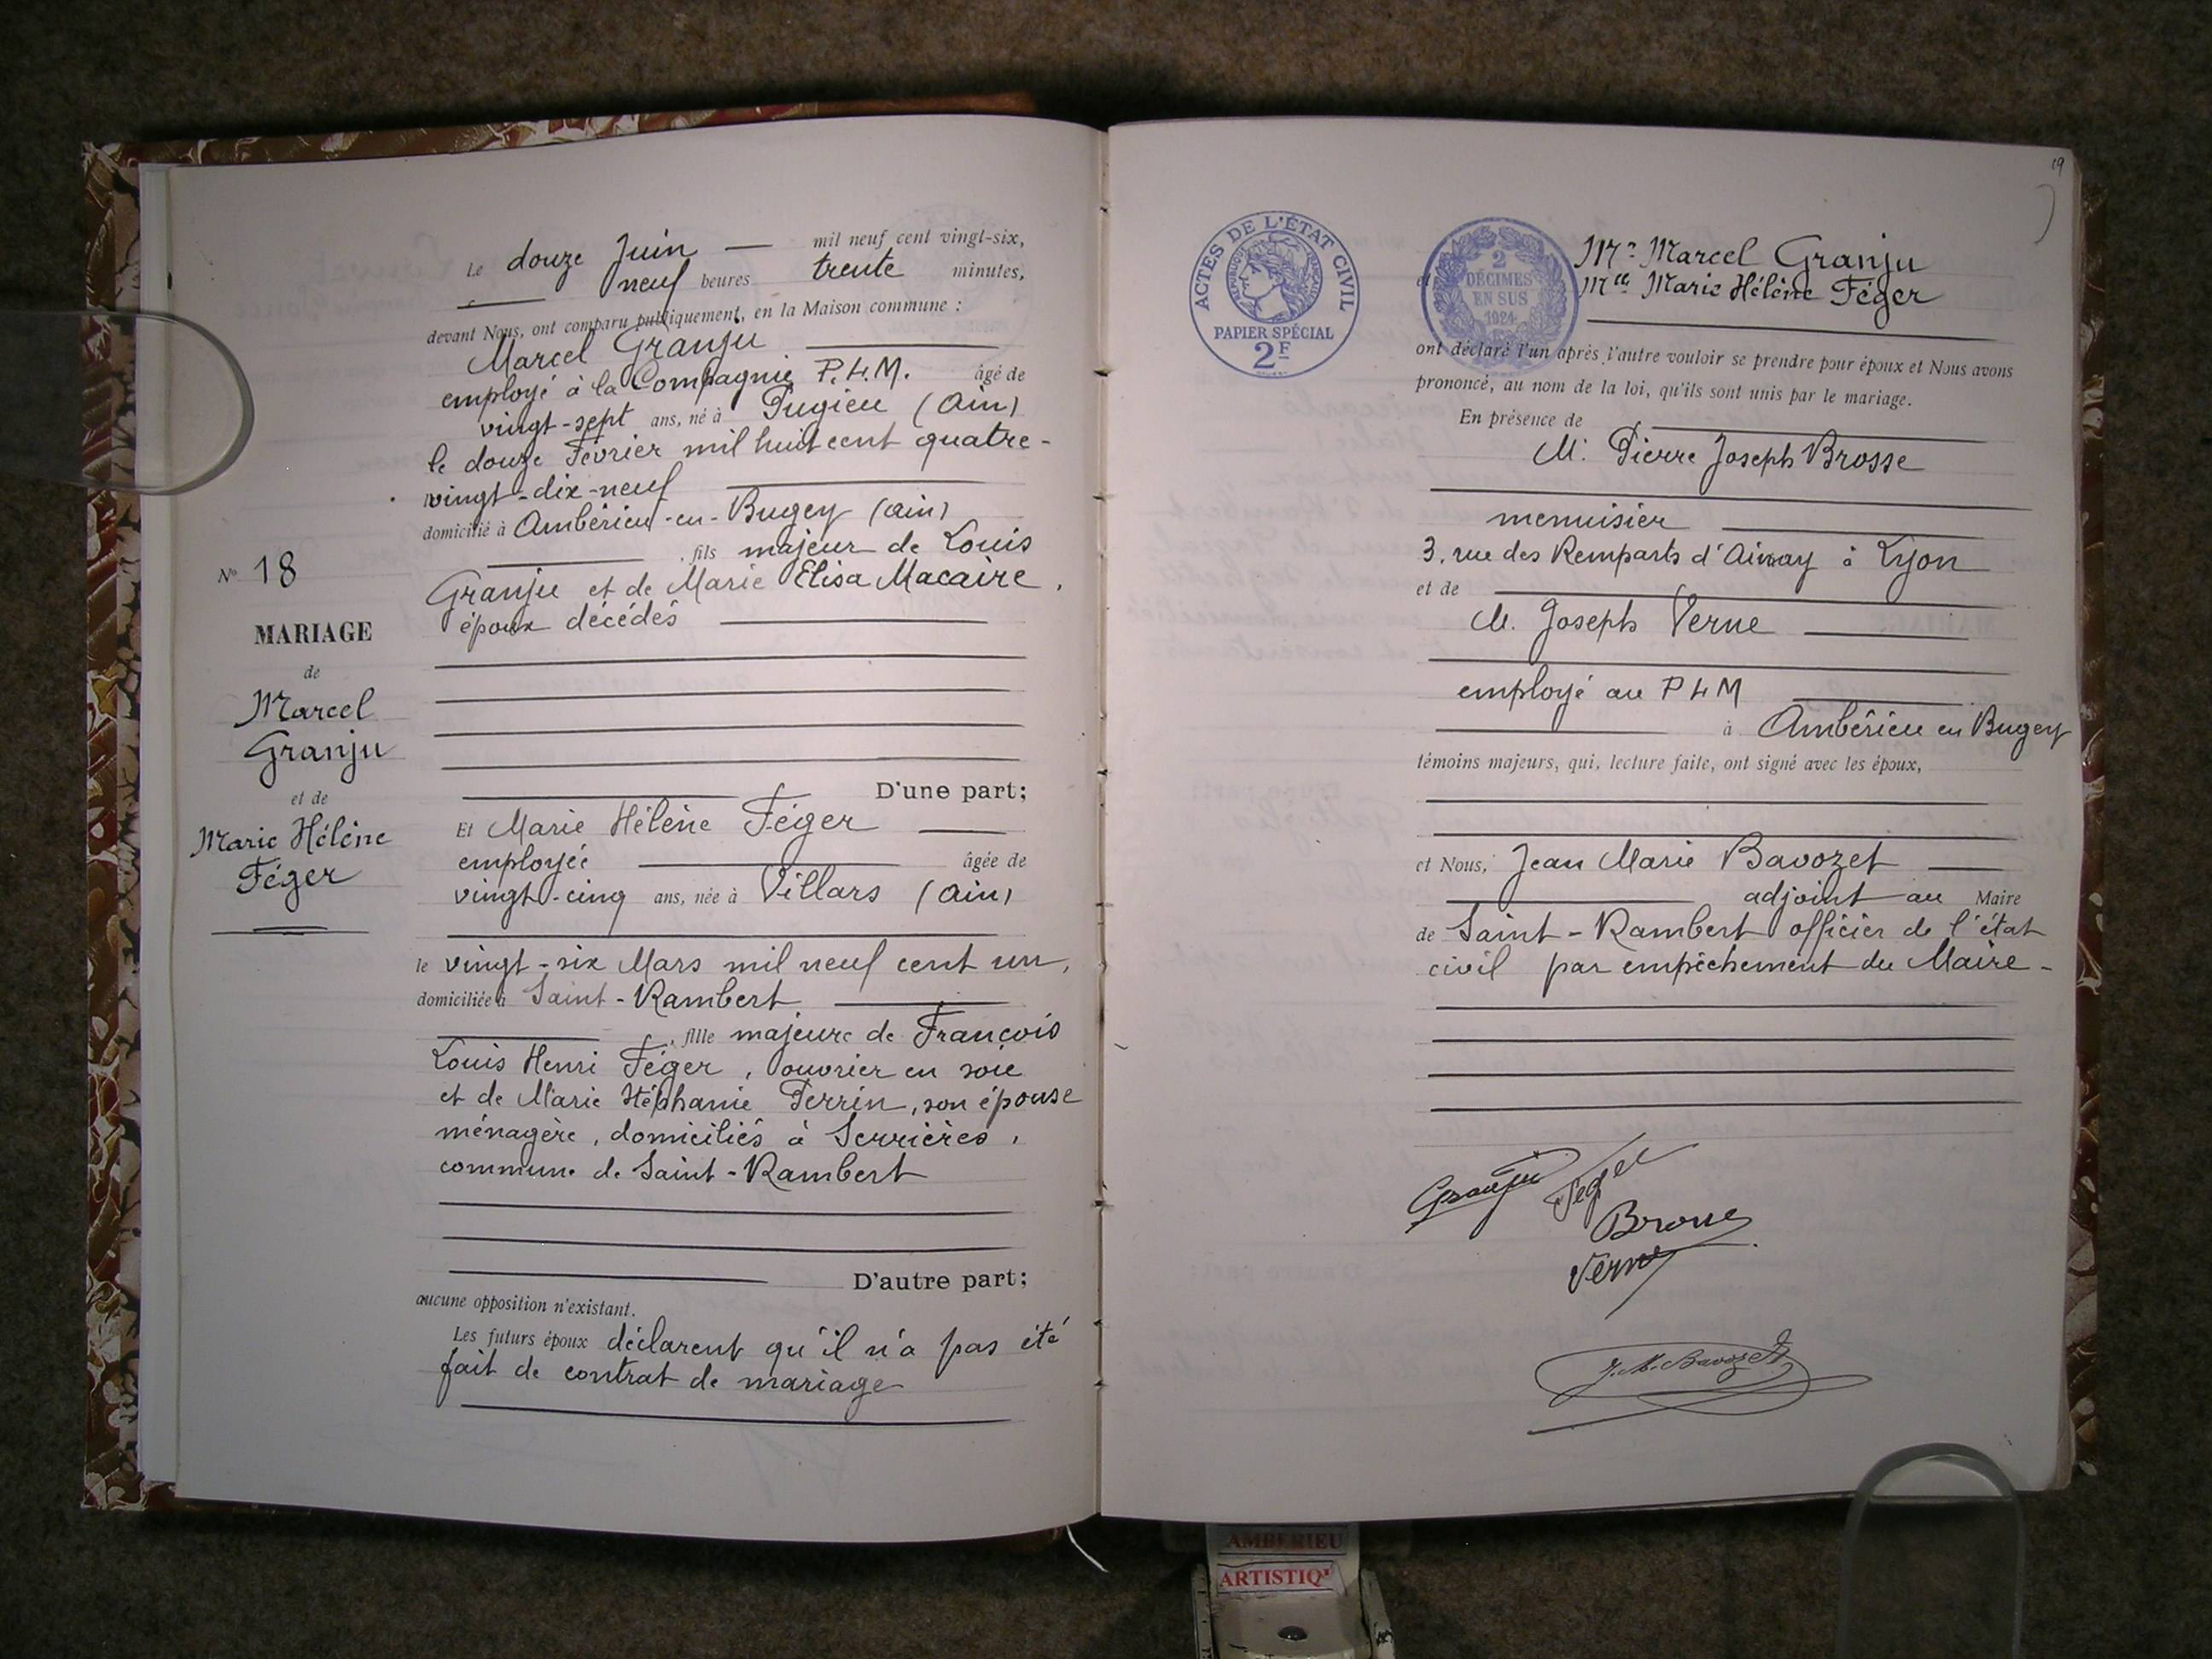 Le douze Juin — mil neuf cent vingt-six,
neuf heures trente minutes,
devant Nous, ont comparu publiquement, en la Maison commune :
Marcel Granju
employé à la Compagnie P.L.M. âgé de
vingt-sept ans, né à Pugieu (Ain)
le douze Février mil huit cent quatre-
vingt-dix-neuf
domicilié à Ambérieu-en-Bugey (ain)
, fils majeur de Louis
Granju et de Marie Elisa Macaire,
époux décédés
N° 18
MARIAGE
de
Marcel
Granju
et de
Marie Hélène
Féger
D'une part;
Et Marie Hélène Féger
employée âgée de
vingt-cinq ans, née à Villars (Ain)
le vingt-six Mars mil neuf cent un,
domiciliée à Saint-Rambert
, fille majeure de François
Louis Henri Féger, ouvrier en soie
et de Marie Stéphanie Perrin, son épouse
ménagère, domiciliés à Serrières,
commune de Saint-Rambert
D'autre part;
aucune opposition n'existant.
Les futurs époux déclarent qu'il n'a pas été
fait de contrat de mariage
19
ACTES DE L'ÉTAT CIVIL
RÉPUBLIQUE FRANÇAISE
PAPIER SPÉCIAL
2F
2
DÉCIMES
EN SUS
1924
Mr Marcel Granju
et Mlle Marie Hélène Féger
ont déclaré l'un après l'autre vouloir se prendre pour époux et Nous avons
prononcé, au nom de la loi, qu'ils sont unis par le mariage.
En présence de
M. Pierre Joseph Brosse
menuisier
3, rue des Remparts d'Ainay à Lyon
et de
M. Joseph Verne
employé au PLM
à Ambérieu en Bugey
témoins majeurs, qui, lecture faite, ont signé avec les époux,
et Nous, Jean Marie Bavozet
adjoint au Maire
de Saint-Rambert officier de l'état
civil par empêchement du Maire-
Granju Feger
Brosse
Verne
J. M. Bavozet
AMBERIEU
ARTISTIQ